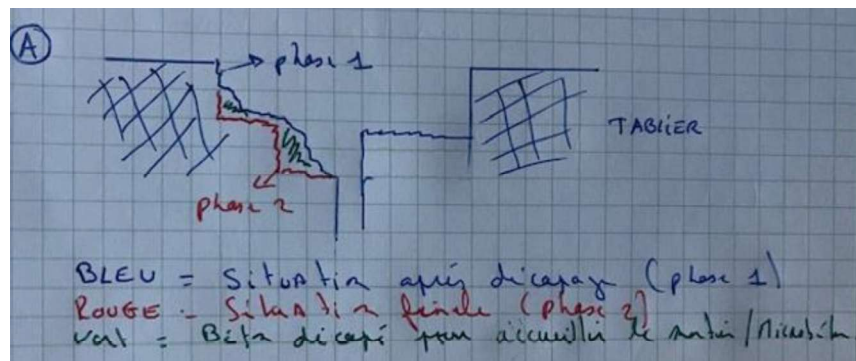 A
phase 1
TABLIER
phase 2
BLEU = Situation après décapage (phase 1)
ROUGE = Situation finale (phase 2)
Vert = Béton décapé pour accueillir le